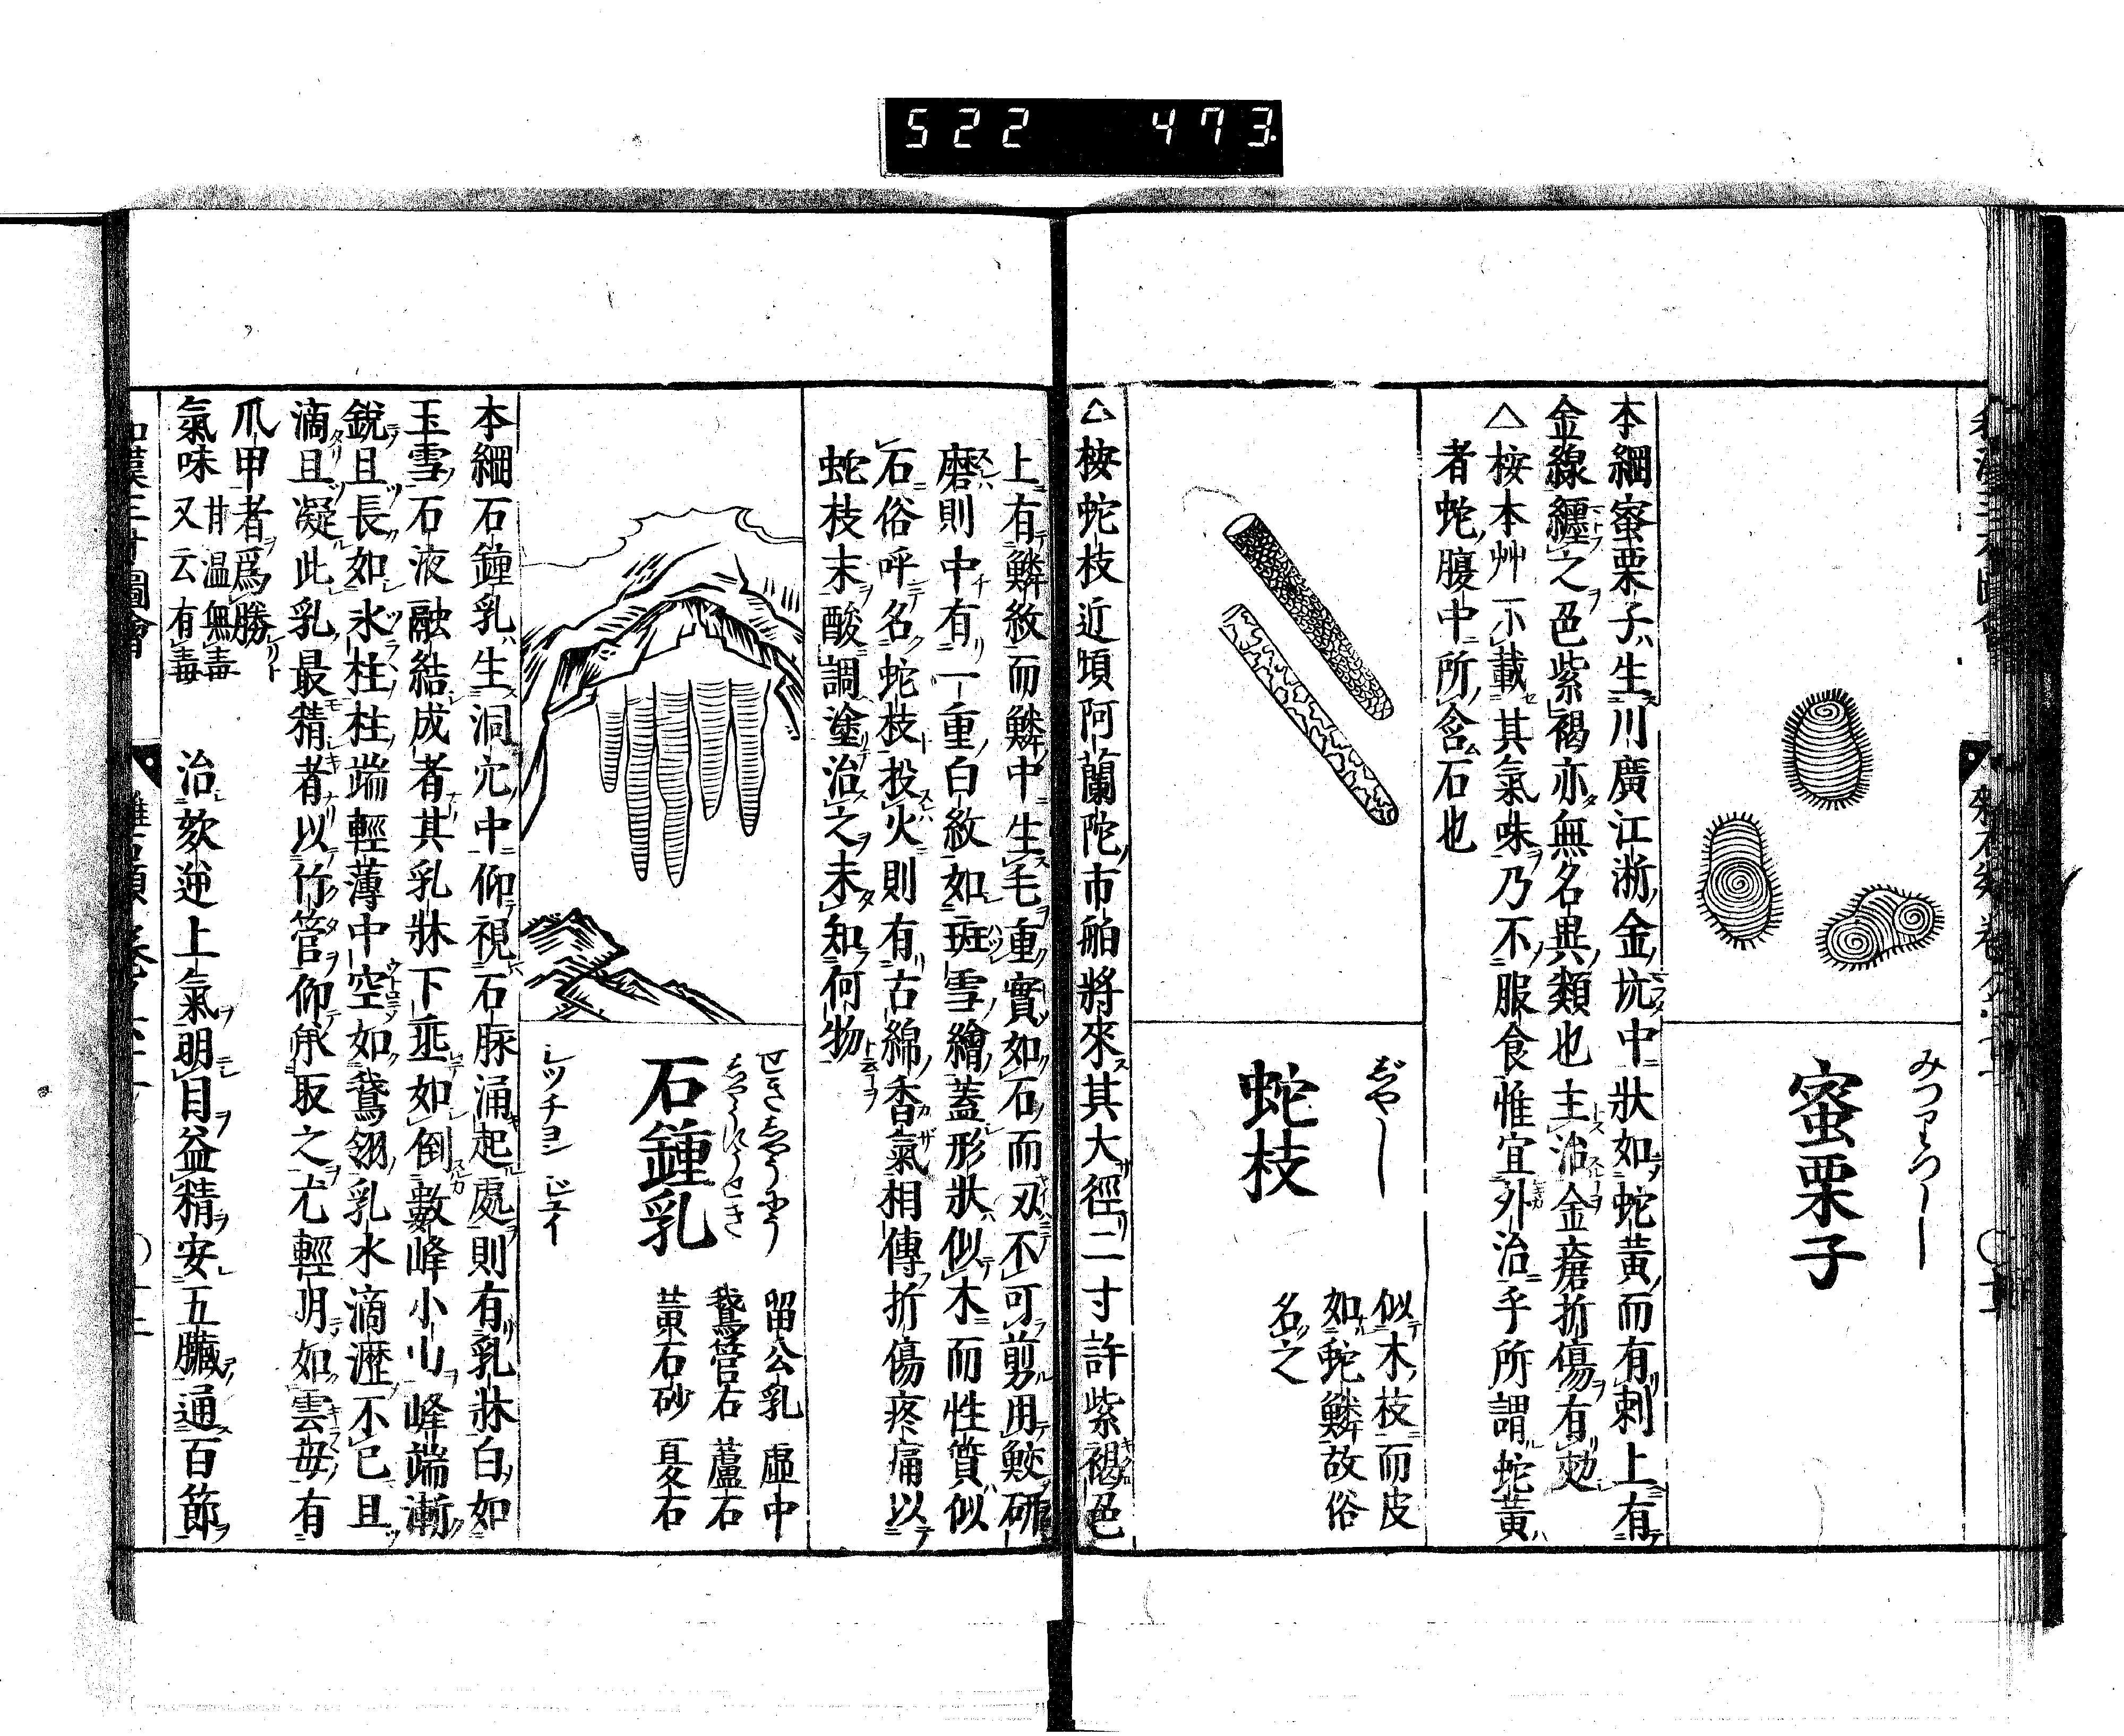 522 473
蜜栗子
本綱蜜栗子生川廣江浙金坑中狀如蛇黃而有刺上有
金線纏之色紫褐亦無名異類也主治金瘡折傷有効
△桉本艸不載其氣味乃不服食惟宜外治乎所謂蛇黃
者蛇腹中所含石也
じやし
蛇枝
似木枝而皮
如蛇鱗故俗
名之
△桉蛇枝近頃阿蘭陀市舶將來其大徑二寸許紫褐色
上有鱗紋而鱗中生毛重實如石而刃不可剪用鮫研
磨則中有一重白紋如斑雪繪蓋形狀似木而性質似
石俗呼名蛇枝投火則有古綿香氣相傳折傷疼痛以
蛇枝末酸調塗治之未知何物
石鍾乳
せきしやうにう
しやうにうせき
シツチヨン ジユイ
留公乳 虛中
鵞管石 蘆石
黃石砂 夏石
本綱石鍾乳生洞穴中仰視石脉涌起處則有乳牀白如
玉雪石液融結成者其乳牀下垂如倒數峰小山峰端漸
銳且長如氷柱柱端輕薄中空如鵞翎乳水滴瀝不已且
滴且凝此乳最精者以竹管仰承取之尤輕明如雲毋有
爪甲者爲勝
氣味 甘温無毒
又云有毒
治欬逆上氣明目益精安五臟通百節